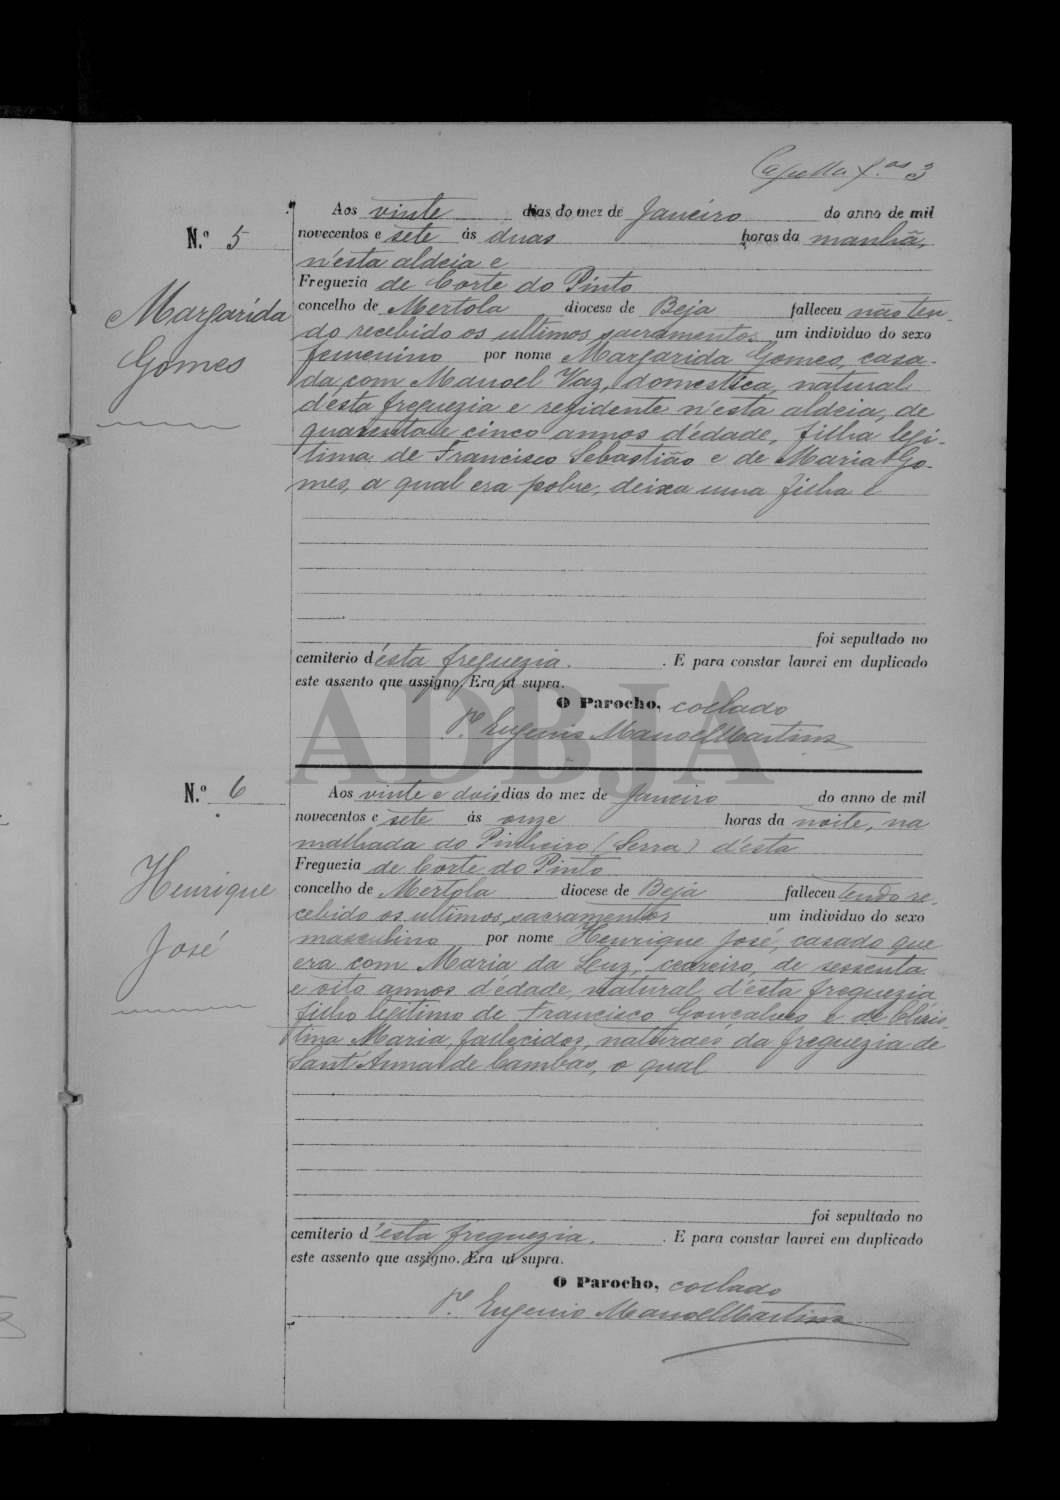 Capella f.as 3
N.º 5
Margarida
Gomes
Aos vinte dias do mez de Janeiro do anno de mil
novecentos e sete ás duas horas da manhã,
n'esta aldeia e
Freguezia de Corte do Pinto
concelho de Mertola diocese de Beja falleceu não ten-
do recebido os ultimos sacramentos um individuo do sexo
femenino por nome Margarida Gomes, casa-
da com Manoel Vaz, domestica, natural
d'esta freguezia e residente n'esta aldeia, de
quarenta e cinco annos d'edade, filha legi-
tima de Francisco Sebastião e de Maria Go-
mes, a qual era pobre, deixa uma filha e
foi sepultado no
cemiterio d'ésta freguezia. . E para constar lavrei em duplicado
este assento que assigno. Era ut supra.
O Parocho, collado
P.e Eugenio Manoel Martins
ADBJA
N.º 6
Henrique
José
Aos vinte e dois dias do mez de Janeiro do anno de mil
novecentos e sete ás onze horas da noite, na
malhada do Pinheiro (Serra) d'ésta
Freguezia de Corte do Pinto
concelho de Mertola diocese de Beja falleceu tendo re-
cebido os ultimos sacramentos um individuo do sexo
masculino por nome Henrique José, casado que
era com Maria da Luz, ceareiro, de sessenta
e oito annos d'édade, natural d'ésta freguezia
filho legitimo de Francisco Gonçalves e de Chris-
tina Maria, fallecidos, naturaes da freguezia de
Sant'Anna de Cambas, o qual
foi sepultado no
cemiterio d'ésta freguezia. . E para constar lavrei em duplicado
este assento que assigno. Era ut supra.
O Parocho, collado
P.e Eugenio Manoel Martins